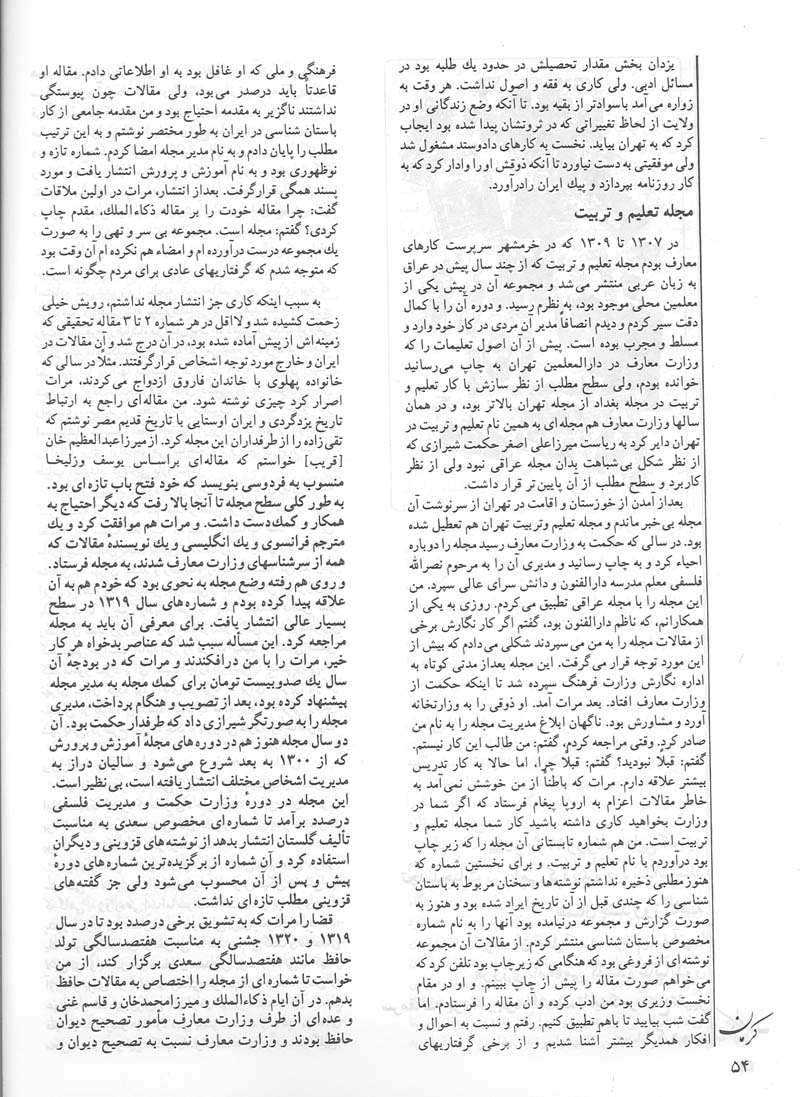 یزدان بخش مقدار تحصیلش در حدود یك طلبه بود در
مسائل ادبی. ولی کاری به فقه و اصول نداشت. هر وقت به
زواره می‌آمد باسوادتر از بقیه بود. تا آنکه وضع زندگانی او در
ولایت از لحاظ تغییراتی که در ثروتشان پیدا شده بود ایجاب
کرد که به تهران بیاید. نخست به کارهای دادوستد مشغول شد
ولی موفقیتی به دست نیاورد تا آنکه ذوقش او را وادار کرد که به
کار روزنامه بپردازد و پیك ایران رادرآورد.
مجله تعلیم و تربیت
در ۱۳۰۷ تا ۱۳۰۹ که در خرمشهر سرپرست کارهای
معارف بودم مجله تعلیم و تربیت که از چند سال پیش در عراق
به زبان عربی منتشر می‌شد و مجموعه آن در پیش یکی از
معلمین محلی موجود بود، به نظرم رسید. و دوره آن را با کمال
دقت سیر کردم و دیدم انصافاً مدیر آن مردی در کار خود وارد و
مسلط و مجرب بوده است. پیش از آن اصول تعلیمات را که
وزارت معارف در دارالمعلمین تهران به چاپ می‌رسانید
خوانده بودم، ولی سطح مطلب از نظر سازش با کار تعلیم و
تربیت در مجله بغداد از مجله تهران بالاتر بود، و در همان
سالها وزارت معارف هم مجله‌ای به همین نام تعلیم و تربیت در
تهران دایر کرد به ریاست میرزاعلی اصغر حکمت شیرازی که
از نظر شکل بی‌شباهت بدان مجله عراقی نبود ولی از نظر
کاربرد و سطح مطلب از آن پایین‌تر قرار داشت.
بعداز آمدن از خوزستان و اقامت در تهران از سرنوشت آن
مجله بی‌خبر ماندم و مجله تعلیم وتربیت تهران هم تعطیل شده
بود. در سالی که حکمت به وزارت معارف رسید مجله را دوباره
احیاء کرد و به چاپ رسانید و مدیری آن را به مرحوم نصرالله
فلسفی معلم مدرسه دارالفنون و دانش سرای عالی سپرد. من
این مجله را با مجله عراقی تطبیق می‌کردم. روزی به یکی از
همکارانم، که ناظم دارالفنون بود، گفتم اگر کار نگارش برخی
از مقالات مجله را به من می‌سپردند شکلی می‌دادم که بیش از
این مورد توجه قرار می‌گرفت. این مجله بعداز مدتی کوتاه به
اداره نگارش وزارت فرهنگ سپرده شد تا اینکه حکمت از
وزارت معارف افتاد. بعد مرات آمد. او ذوقی را به وزارتخانه
آورد و مشاورش بود. ناگهان ابلاغ مدیریت مجله را به نام من
صادر کرد. وقتی مراجعه کردم، گفتم: من طالب این کار نیستم.
گفتم: قبلاً نبودید؟ گفتم: قبلاً چرا، اما حالا به کار تدریس
بیشتر علاقه دارم. مرات که باطناً از من خوشش نمی‌آمد به
خاطر مقالات اعزام به اروپا پیغام فرستاد که اگر شما در
وزارت بخواهید کاری داشته باشید کار شما مجله تعلیم و
تربیت است. من هم شماره تابستانی آن مجله را که زیر چاپ
بود درآوردم با نام تعلیم و تربیت. و برای نخستین شماره که
هنوز مطلبی ذخیره نداشتم نوشته‌ها و سخنان مربوط به باستان
شناسی را که چندی قبل از آن تاریخ ایراد شده بود و هنوز به
صورت گزارش و مجموعه درنیامده بود آنها را به نام شماره
مخصوص باستان شناسی منتشر کردم. از مقالات آن مجموعه
نوشته‌ای از فروغی بود که هنگامی که زیرچاپ بود تلفن کرد که
می‌خواهم صورت مقاله را پیش از چاپ ببینم. و او در مقام
نخست وزیری بود من ادب کرده و آن مقاله را فرستادم. اما
گفت شب بیایید تا باهم تطبیق کنیم. رفتم و نسبت به احوال و
افکار همدیگر بیشتر آشنا شدیم و از برخی گرفتاریهای
فرهنگی و ملی که او غافل بود به او اطلاعاتی دادم. مقاله او
قاعدتاً باید درصدر می‌بود، ولی مقالات چون پیوستگی
نداشتند ناگزیر به مقدمه احتیاج بود و من مقدمه جامعی از کار
باستان شناسی در ایران به طور مختصر نوشتم و به این ترتیب
مطلب را پایان دادم و به نام مدیر مجله امضا کردم. شماره تازه و
نوظهوری بود و به نام آموزش و پرورش انتشار یافت و مورد
پسند همگی قرارگرفت. بعداز انتشار، مرات در اولین ملاقات
گفت: چرا مقاله خودت را بر مقاله ذکاءالملك، مقدم چاپ
کردی؟ گفتم: مجله است. مجموعه بی سر و تهی را به صورت
یك مجموعه درست درآورده ام و امضاء هم نکرده ام آن وقت بود
که متوجه شدم که گرفتاریهای عادی برای مردم چگونه است.
به سبب اینکه کاری جز انتشار مجله نداشتم، رویش خیلی
زحمت کشیده شد و لااقل در هر شماره ۲ تا ۳ مقاله تحقیقی که
زمینه‌اش از پیش آماده شده بود، در آن درج شد و آن مقالات در
ایران و خارج مورد توجه اشخاص قرارگرفتند. مثلاً در سالی که
خانواده پهلوی با خاندان فاروق ازدواج می‌کردند، مرات
اصرار کرد چیزی نوشته شود. من مقاله‌ای راجع به ارتباط
تاریخ یزدگردی و ایران اوستایی با تاریخ قدیم مصر نوشتم که
تقی‌زاده را از طرفداران این مجله کرد. از میرزاعبدالعظیم خان
[قریب] خواستم که مقاله‌ای براساس یوسف وزلیخا
منسوب به فردوسی بنویسد که خود فتح باب تازه‌ای بود.
به طور کلی سطح مجله تا آنجا بالا رفت که دیگر احتیاج به
همکار و کمك‌دست داشت. و مرات هم موافقت کرد و یك
مترجم فرانسوی و یك انگلیسی و یك نویسندۀ مقالات که
همه از سرشناسهای وزارت معارف شدند، به مجله فرستاد.
و روی هم رفته وضع مجله به نحوی بود که خودم هم به آن
علاقه پیدا کرده بودم و شماره‌های سال ۱۳۱۹ در سطح
بسیار عالی انتشار یافت. برای معرفی آن باید به مجله
مراجعه کرد. این مسأله سبب شد که عناصر بدخواه هر کار
خیر، مرات را با من درافکندند و مرات که در بودجۀ آن
سال یك صدوبیست تومان برای کمك مجله به مدیر مجله
پیشنهاد کرده بود، بعد از تصویب و هنگام پرداخت، مدیری
مجله را به صورتگر شیرازی داد که طرفدار حکمت بود. آن
دو سال مجله هنوز هم در دوره‌های مجلۀ آموزش و پرورش
که از ۱۳۰۰ به بعد شروع می‌شود و سالیان دراز به
مدیریت اشخاص مختلف انتشار یافته است، بی‌نظیر است.
این مجله در دورۀ وزارت حکمت و مدیریت فلسفی
درصدد برآمد تا شماره‌ای مخصوص سعدی به مناسبت
تألیف گلستان انتشار بدهد از نوشته‌های قزوینی و دیگران
استفاده کرد و آن شماره از برگزیده‌ترین شماره‌های دورۀ
پیش و پس از آن محسوب می‌شود ولی جز گفته‌های
قزوینی مطلب تازه‌ای نداشت.
قضا را مرات که به تشویق برخی درصدد بود تا در سال
۱۳۱۹ و ۱۳۲۰ جشنی به مناسبت هفتصدسالگی تولد
حافظ مانند هفتصدسالگی سعدی برگزار کند، از من
خواست تا شماره‌ای از مجله را اختصاص به مقالات حافظ
بدهم. در آن ایام ذکاءالملك و میرزامحمدخان و قاسم غنی
و عده‌ای از طرف وزارت معارف مأمور تصحیح دیوان
حافظ بودند و وزارت معارف نسبت به تصحیح دیوان و
کرمان
۵۴